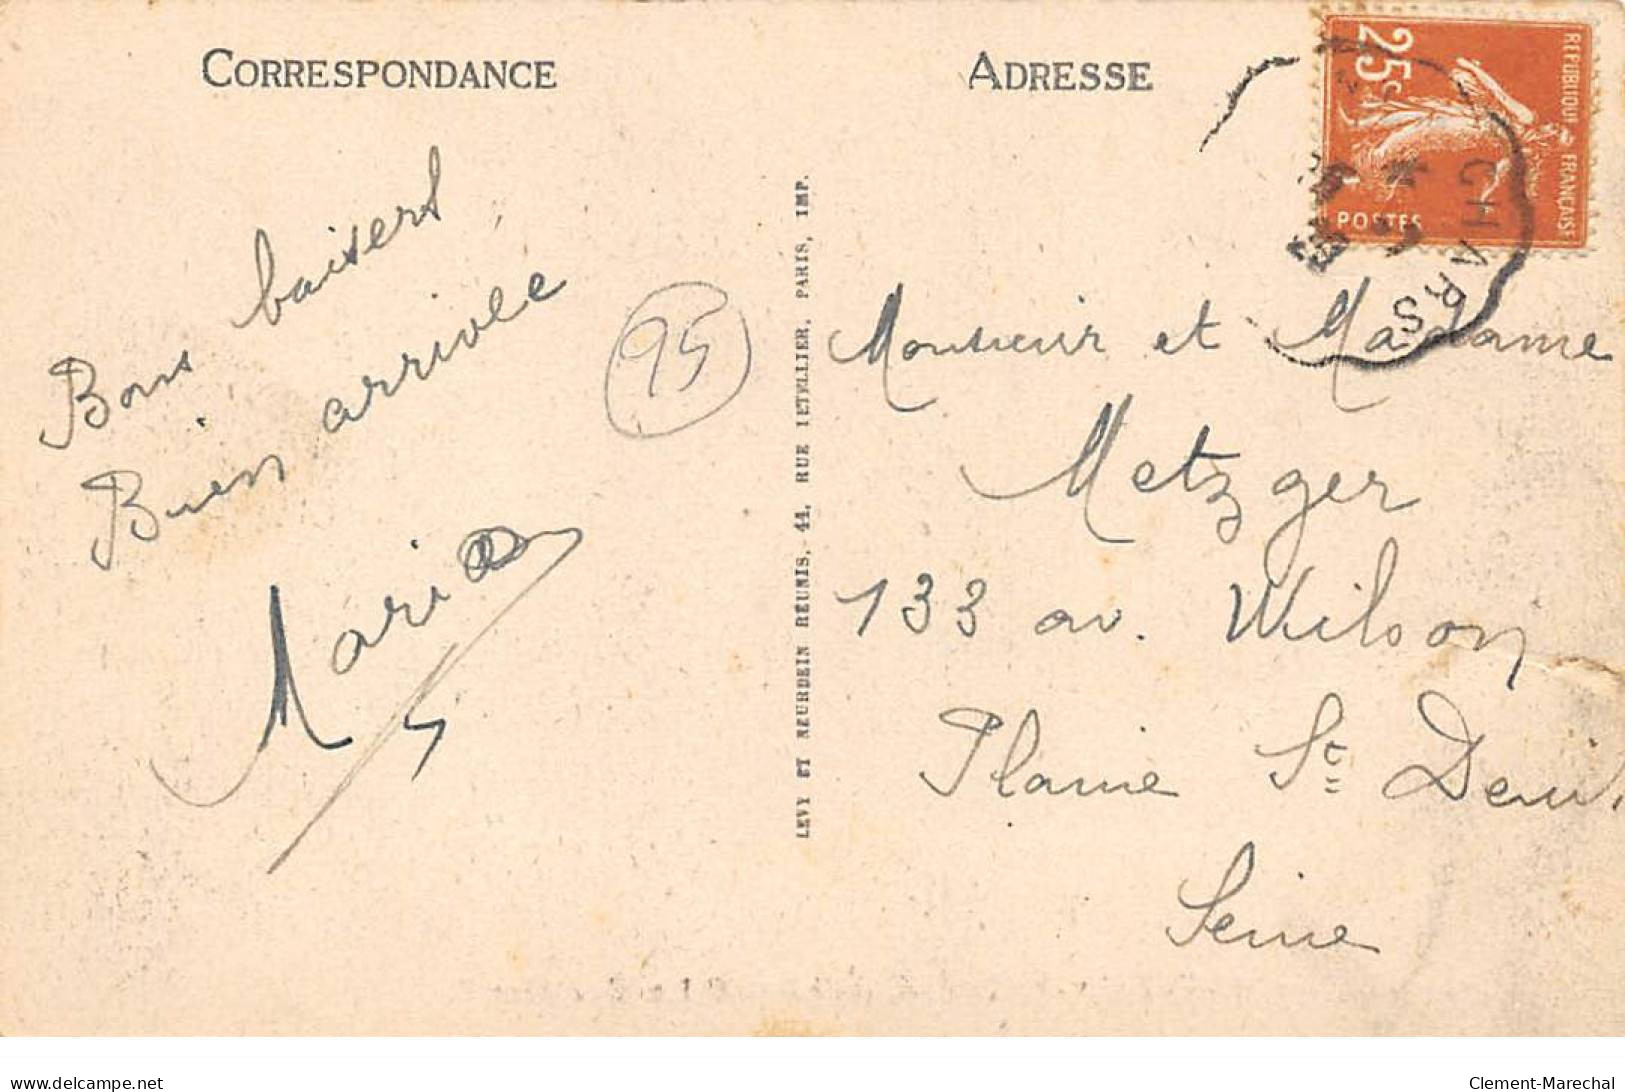 CORRESPONDANCE
Bons baisers
Bien arrivée
Maria
95
LEVY ET NEURDEIN RÉUNIS, 44, RUE LETELLIER, PARIS, IMP.
ADRESSE
25c
REPUBLIQUE FRANÇAISE
POSTES
CHARS
Monsieur et Madame
Metzger
133 av. Wilson
Plaine St Denis
Seine
www.delcampe.net
Clement-Marechal